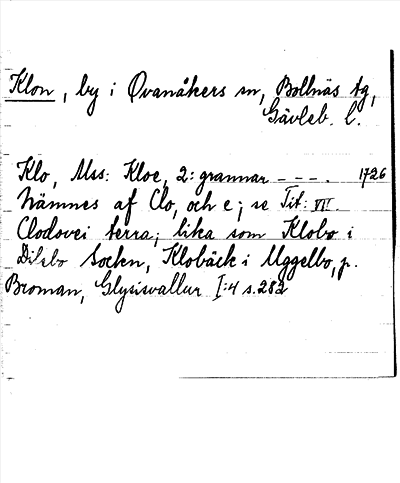 Klon, by i Ovanåkers sn, Bollnäs tg,
Gävleb. l.
Klo, Mss: Kloe, 2: grannar - - - . 1726
Nämnes af Clo, och e; se Tit: VII.
Clodovei terra; lika som Klobo i
Dilsbo Sockn, Klobäck i Uggelbo, p.
Broman, Glysisvallur I:4 s. 282